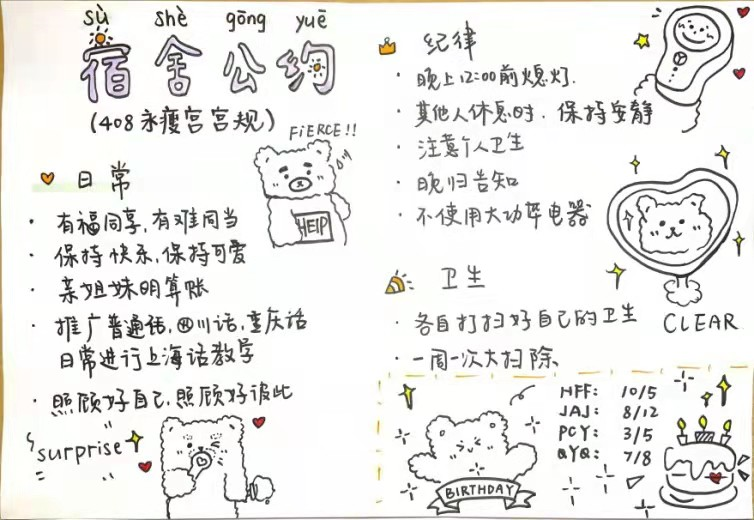 sù shè gōng yuē
宿舍公约
(408永瘦宫宫规)
FiERCE!!
日常
· 有福同享,有难同当
· 保持快乐,保持可爱
· 亲姐妹明算账
· 推广普通话,四川话,重庆话
日常进行上海话教学
· 照顾好自己,照顾好彼此
surprise
HElP
纪律
· 晚上12:00前熄灯.
· 其他人休息时,保持安静
· 注意个人卫生
· 晚归告知
· 不使用大功率电器
卫生
· 各自打扫好自己的卫生
· 一周一次大扫除
CLEAR
HFF: 10/5
JAJ: 8/12
PCY: 3/5
QYQ: 7/8
BIRTHDAY